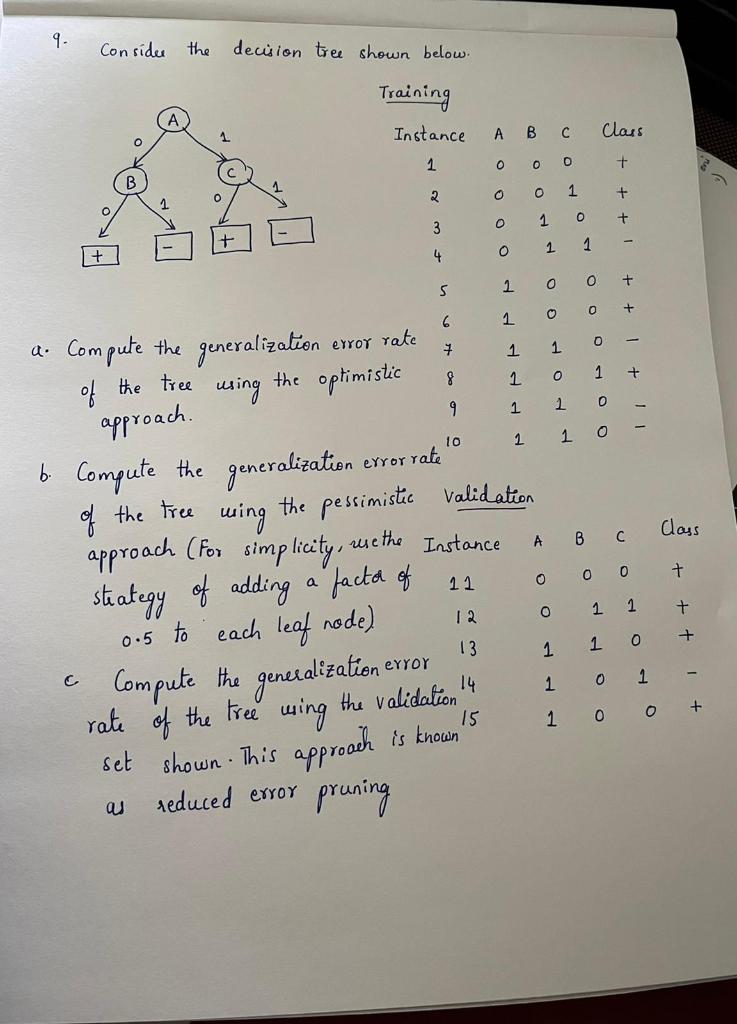 9. Consider the decision tree shown below.
Training
Instance A B C Class
1 0 0 0 +
2 0 0 1 +
3 0 1 0 +
4 0 1 1 -
5 1 0 0 +
6 1 0 0 +
7 1 1 0 -
8 1 0 1 +
9 1 1 0 -
10 1 1 0 -
A
0 1
B C
0 1 0 1
+ - + -
a. Compute the generalization error rate
of the tree using the optimistic
approach.
b. Compute the generalization error rate
of the tree using the pessimistic
approach (For simplicity, use the
strategy of adding a factor of
0.5 to each leaf node)
Validation
Instance A B C Class
11 0 0 0 +
12 0 1 1 +
13 1 1 0 +
14 1 0 1 -
15 1 0 0 +
c Compute the generalization error
rate of the tree using the validation
set shown. This approach is known
as reduced error pruning